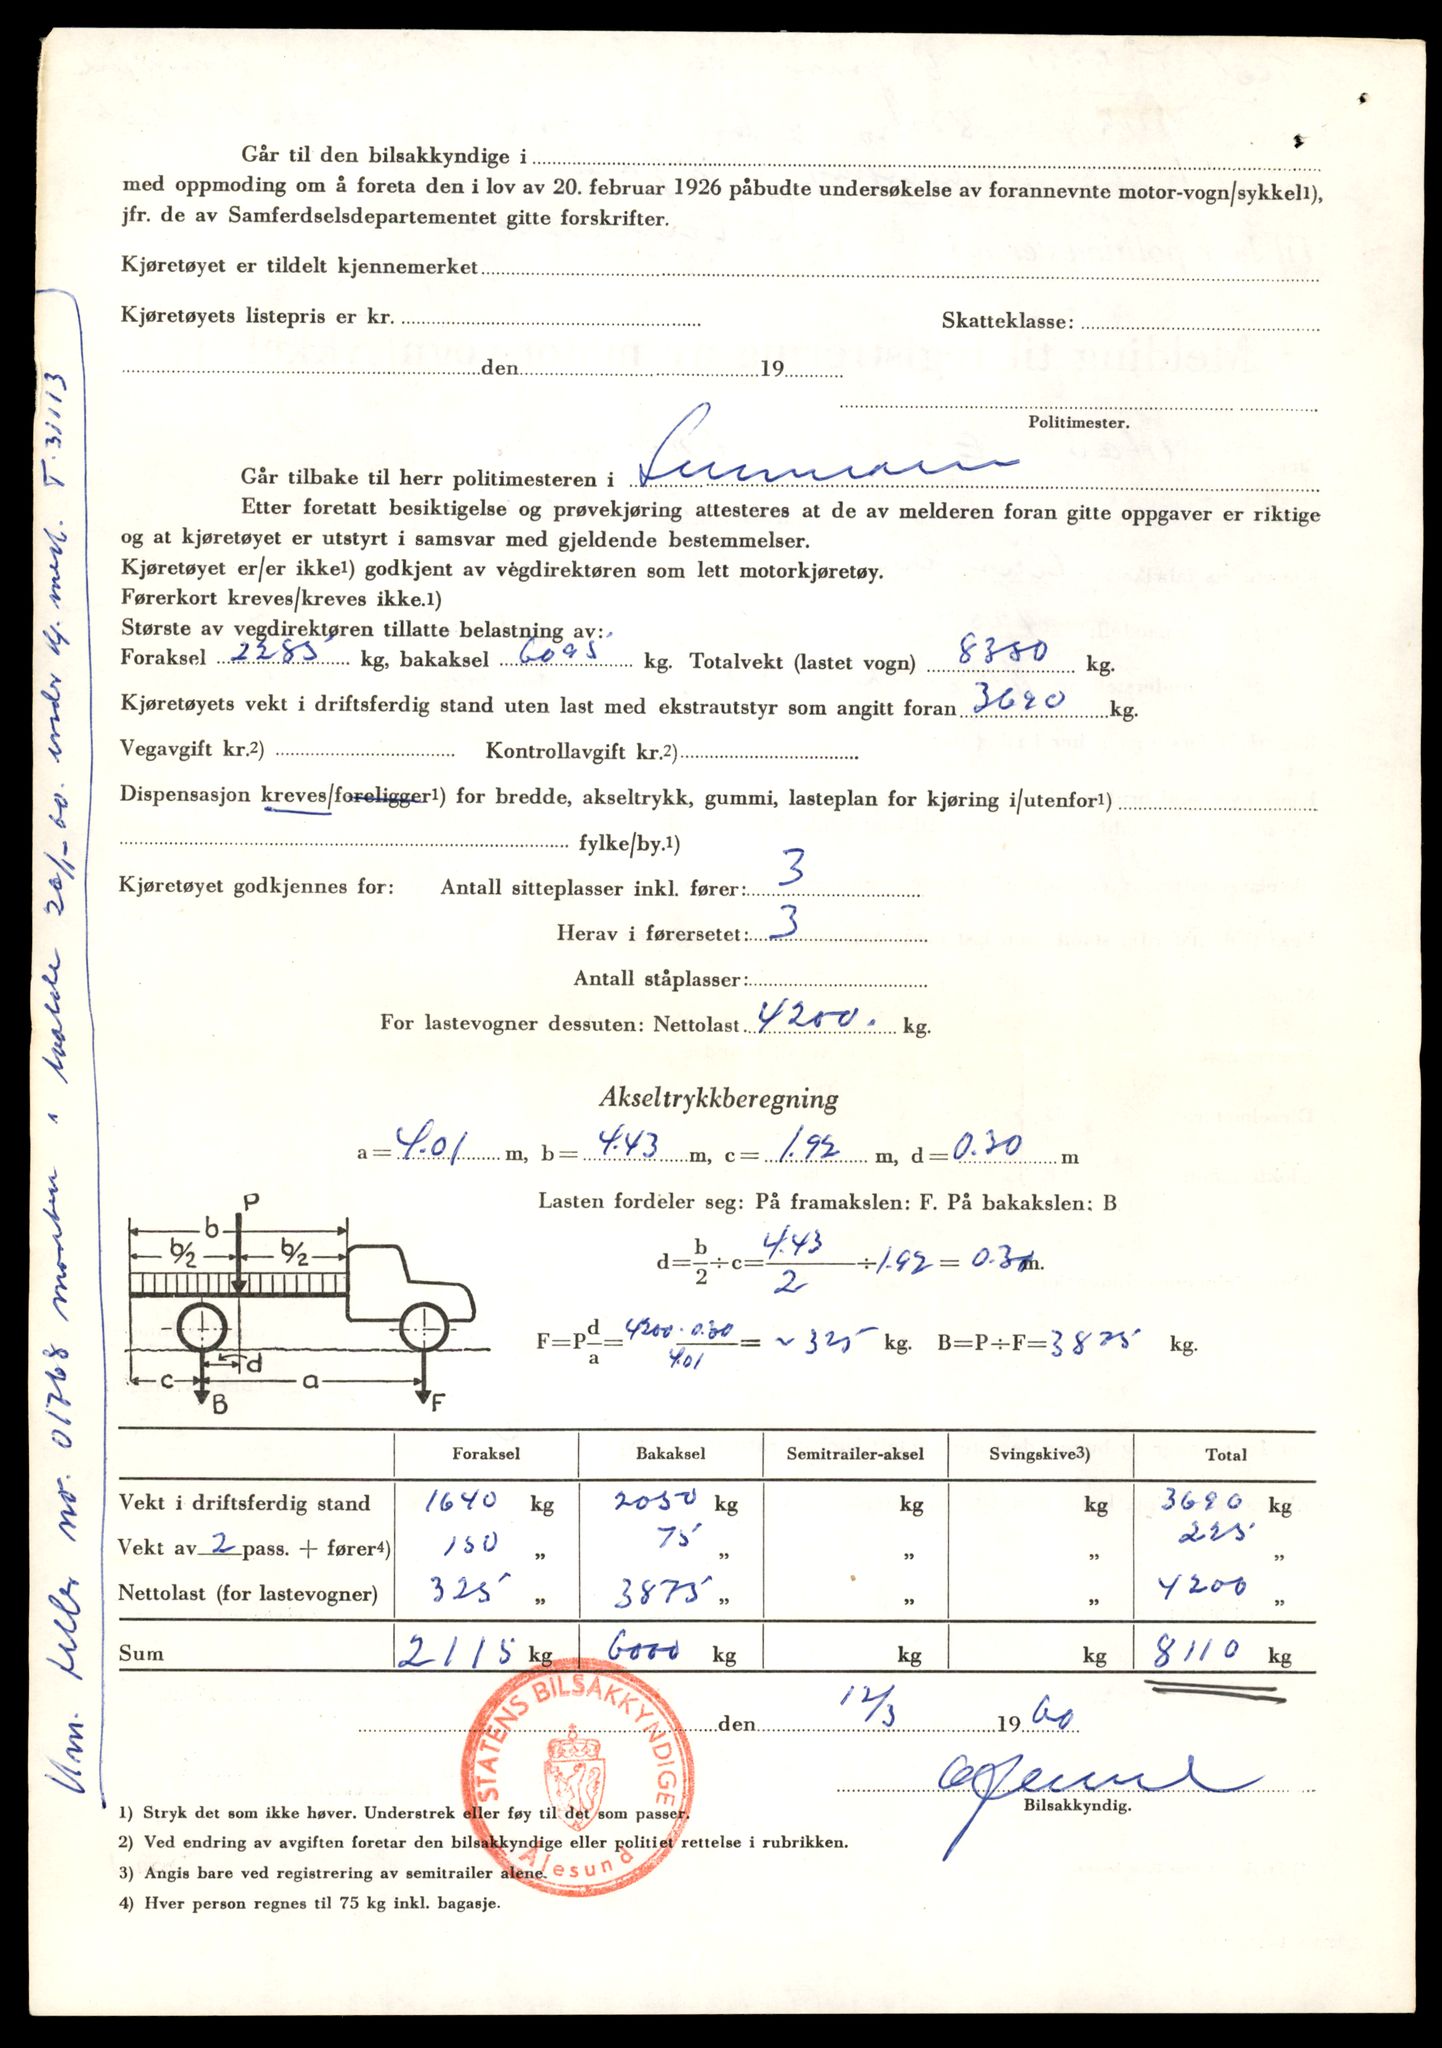 Går til den bilsakkyndige i
med oppmoding om å foreta den i lov av 20. februar 1926 påbudte undersøkelse av forannevnte motor-vogn/sykkel1),
jfr. de av Samferdselsdepartementet gitte forskrifter.
Kjøretøyet er tildelt kjennemerket
Kjøretøyets listepris er kr. Skatteklasse:
den 19
Politimester.
Går tilbake til herr politimesteren i
Etter foretatt besiktigelse og prøvekjøring attesteres at de av melderen foran gitte oppgaver er riktige
og at kjøretøyet er utstyrt i samsvar med gjeldende bestemmelser.
Kjøretøyet er/er ikke1) godkjent av vegdirektøren som lett motorkjøretøy.
Førerkort kreves/kreves ikke.1)
Største av vegdirektøren tillatte belastning av:
Foraksel 2285 kg, bakaksel 6095 kg. Totalvekt (lastet vogn) 8380 kg.
Kjøretøyets vekt i driftsferdig stand uten last med ekstrautstyr som angitt foran 3690 kg.
Vegavgift kr.2) Kontrollavgift kr.2)
Dispensasjon kreves/foreligger1) for bredde, akseltrykk, gummi, lasteplan for kjøring i/utenfor1)
fylke/by.1)
Kjøretøyet godkjennes for: Antall sitteplasser inkl. fører: 3
Herav i førersetet: 3
Antall ståplasser:
For lastevogner dessuten: Nettolast 4200. kg.
Akseltrykkberegning
a = 4.01 m, b = 4.43 m, c = 1.92 m, d = 0.30 m
Lasten fordeler seg: På framakslen: F. På bakakslen: B
d = b/2 ÷ c = 4.43/2 ÷ 1.92 = 0.30 m.
F = P d/a = 4200 · 0.30/4.01 = ~ 325 kg. B = P ÷ F = 3875 kg.
P
b
b/2 b/2
d
c a
B F
Foraksel Bakaksel Semitrailer-aksel Svingskive3) Total
Vekt i driftsferdig stand 1640 kg 2050 kg kg kg 3690 kg
Vekt av 2 pass. + fører4) 150 „ 75 „ „ „ 225 „
Nettolast (for lastevogner) 325 „ 3875 „ „ „ 4200 „
Sum 2115 kg 6000 kg kg kg 8110 kg
den 12/3 19 60
Bilsakkyndig.
STATENS BILSAKKYNDIGE
Ålesund
1) Stryk det som ikke høver. Understrek eller føy til det som passer.
2) Ved endring av avgiften foretar den bilsakkyndige eller politiet rettelse i rubrikken.
3) Angis bare ved registrering av semitrailer alene.
4) Hver person regnes til 75 kg inkl. bagasje.
no. 01768 i Molde 20/1-60. under kj. merk. T. 31113